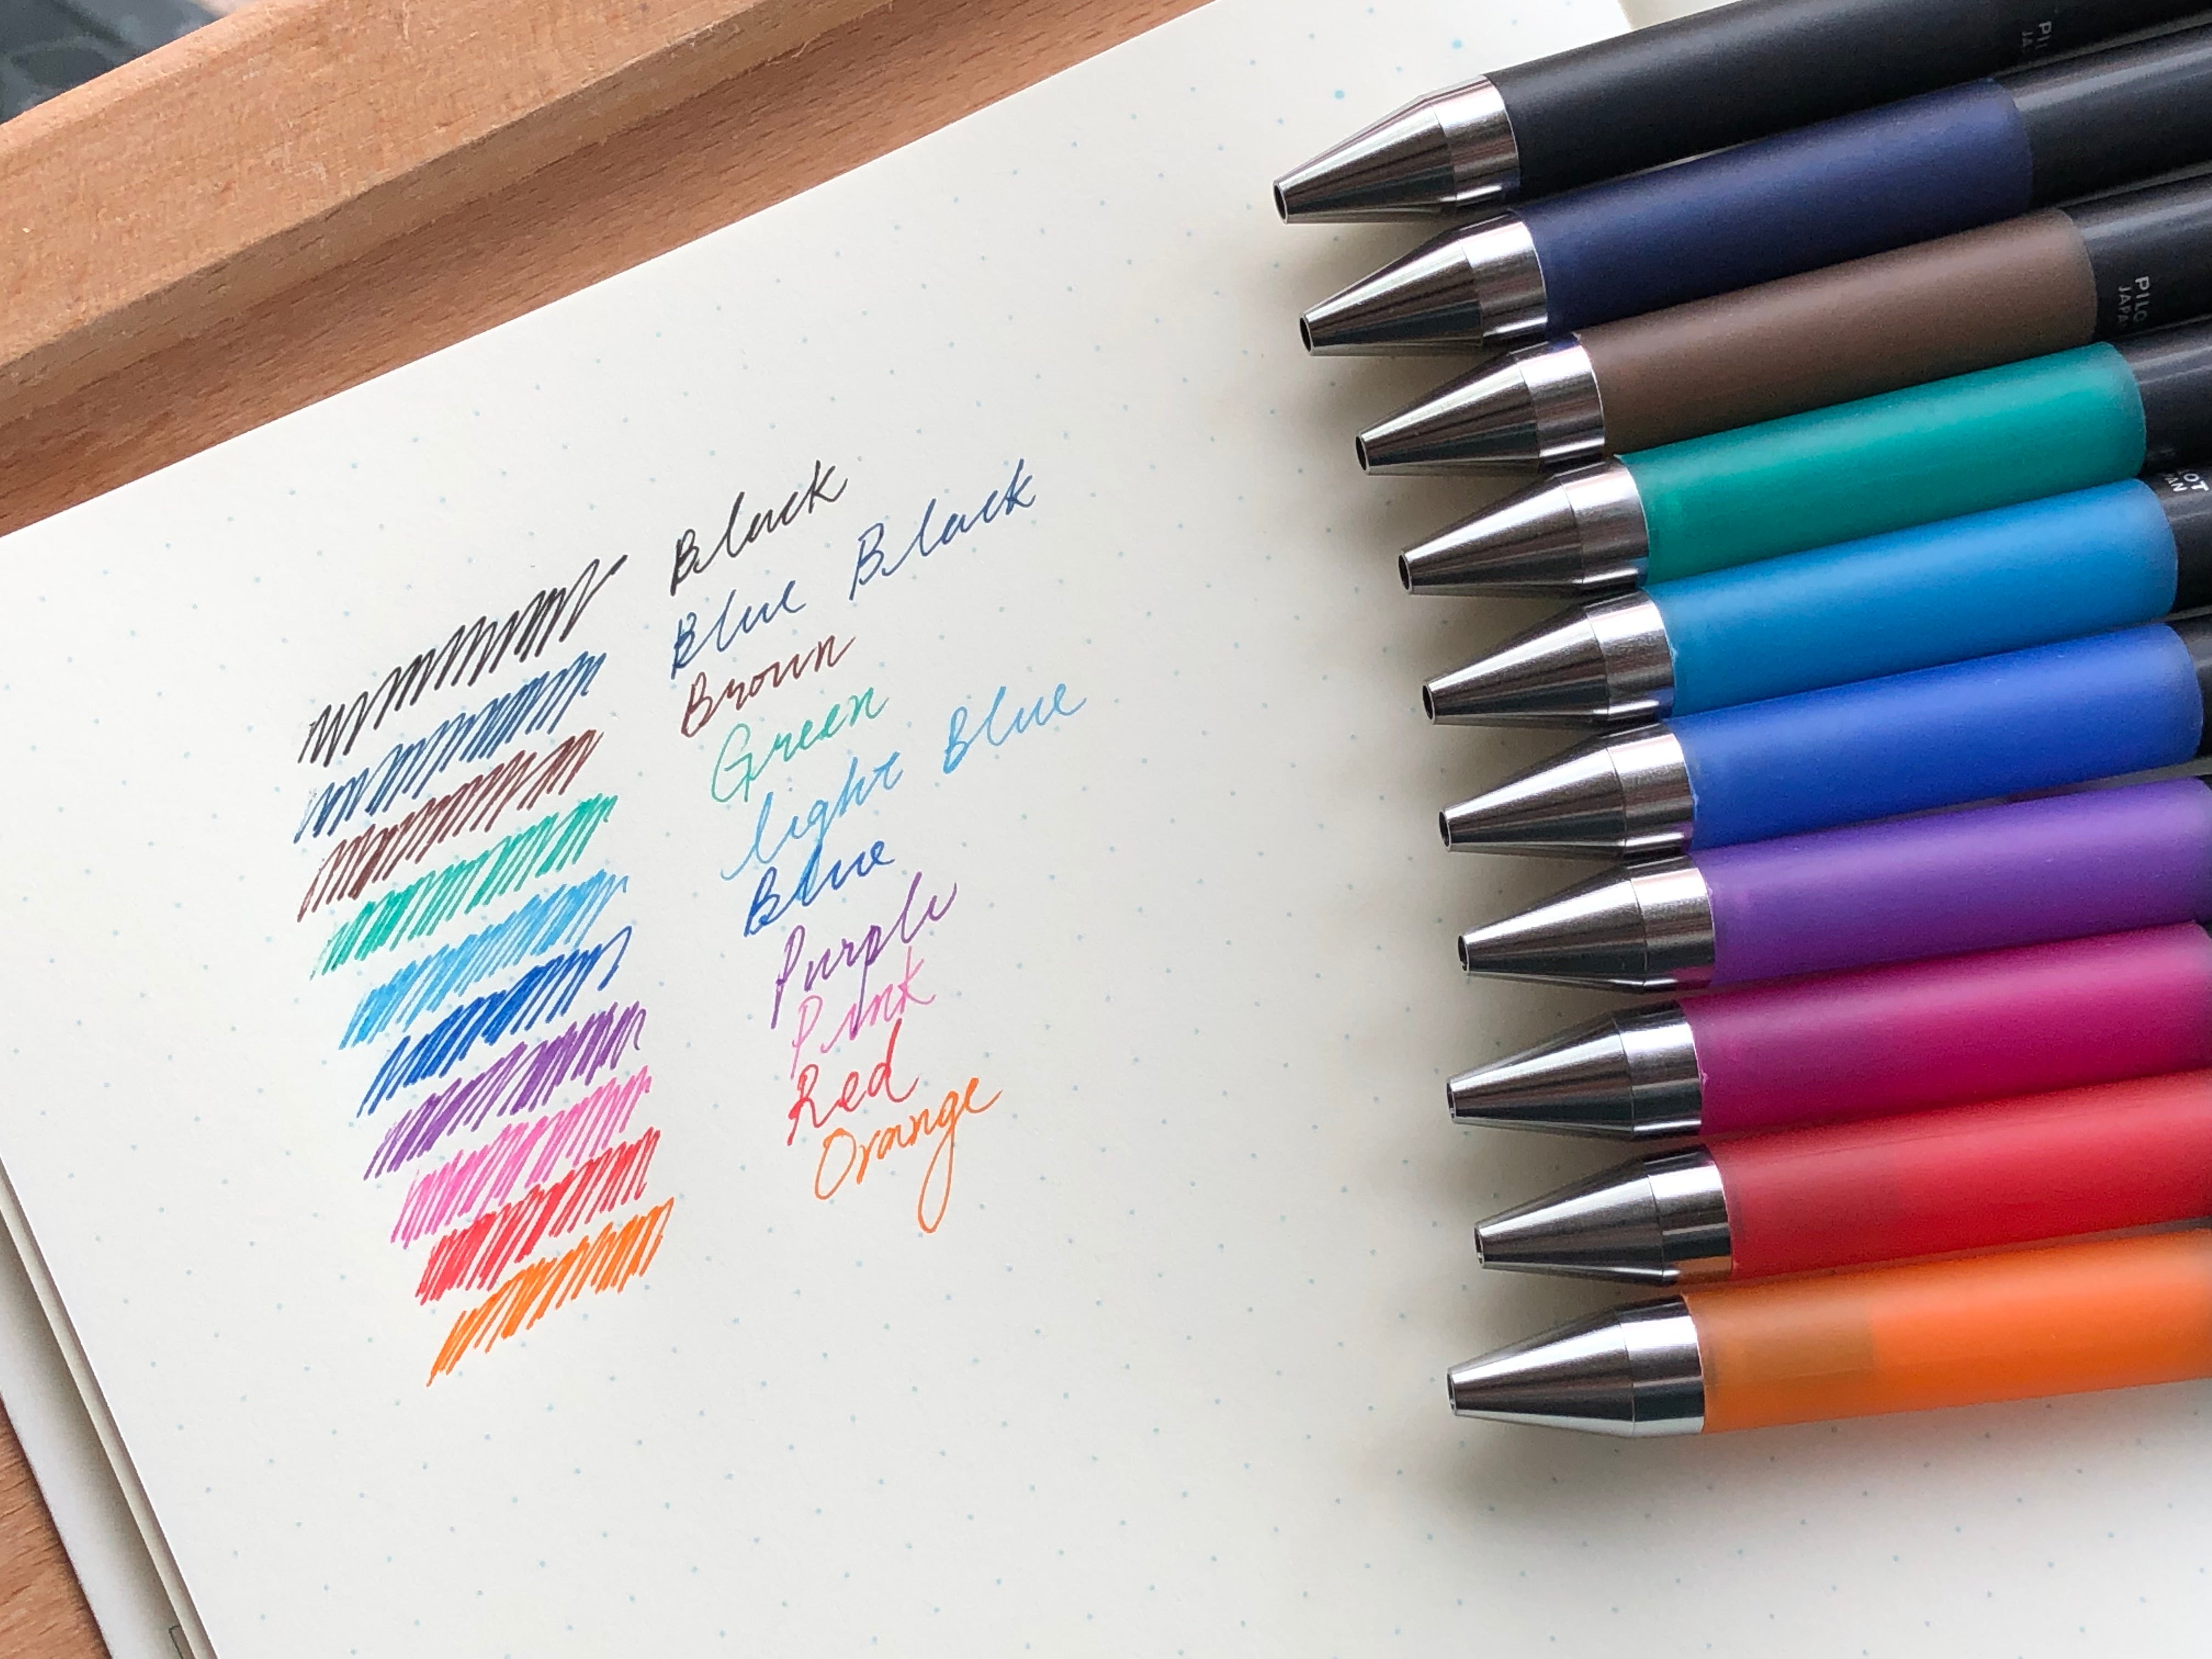 Black
Blue Black
Brown
Green
light Blue
Blue
Purple
Pink
Red
Orange
PILO
JAPA